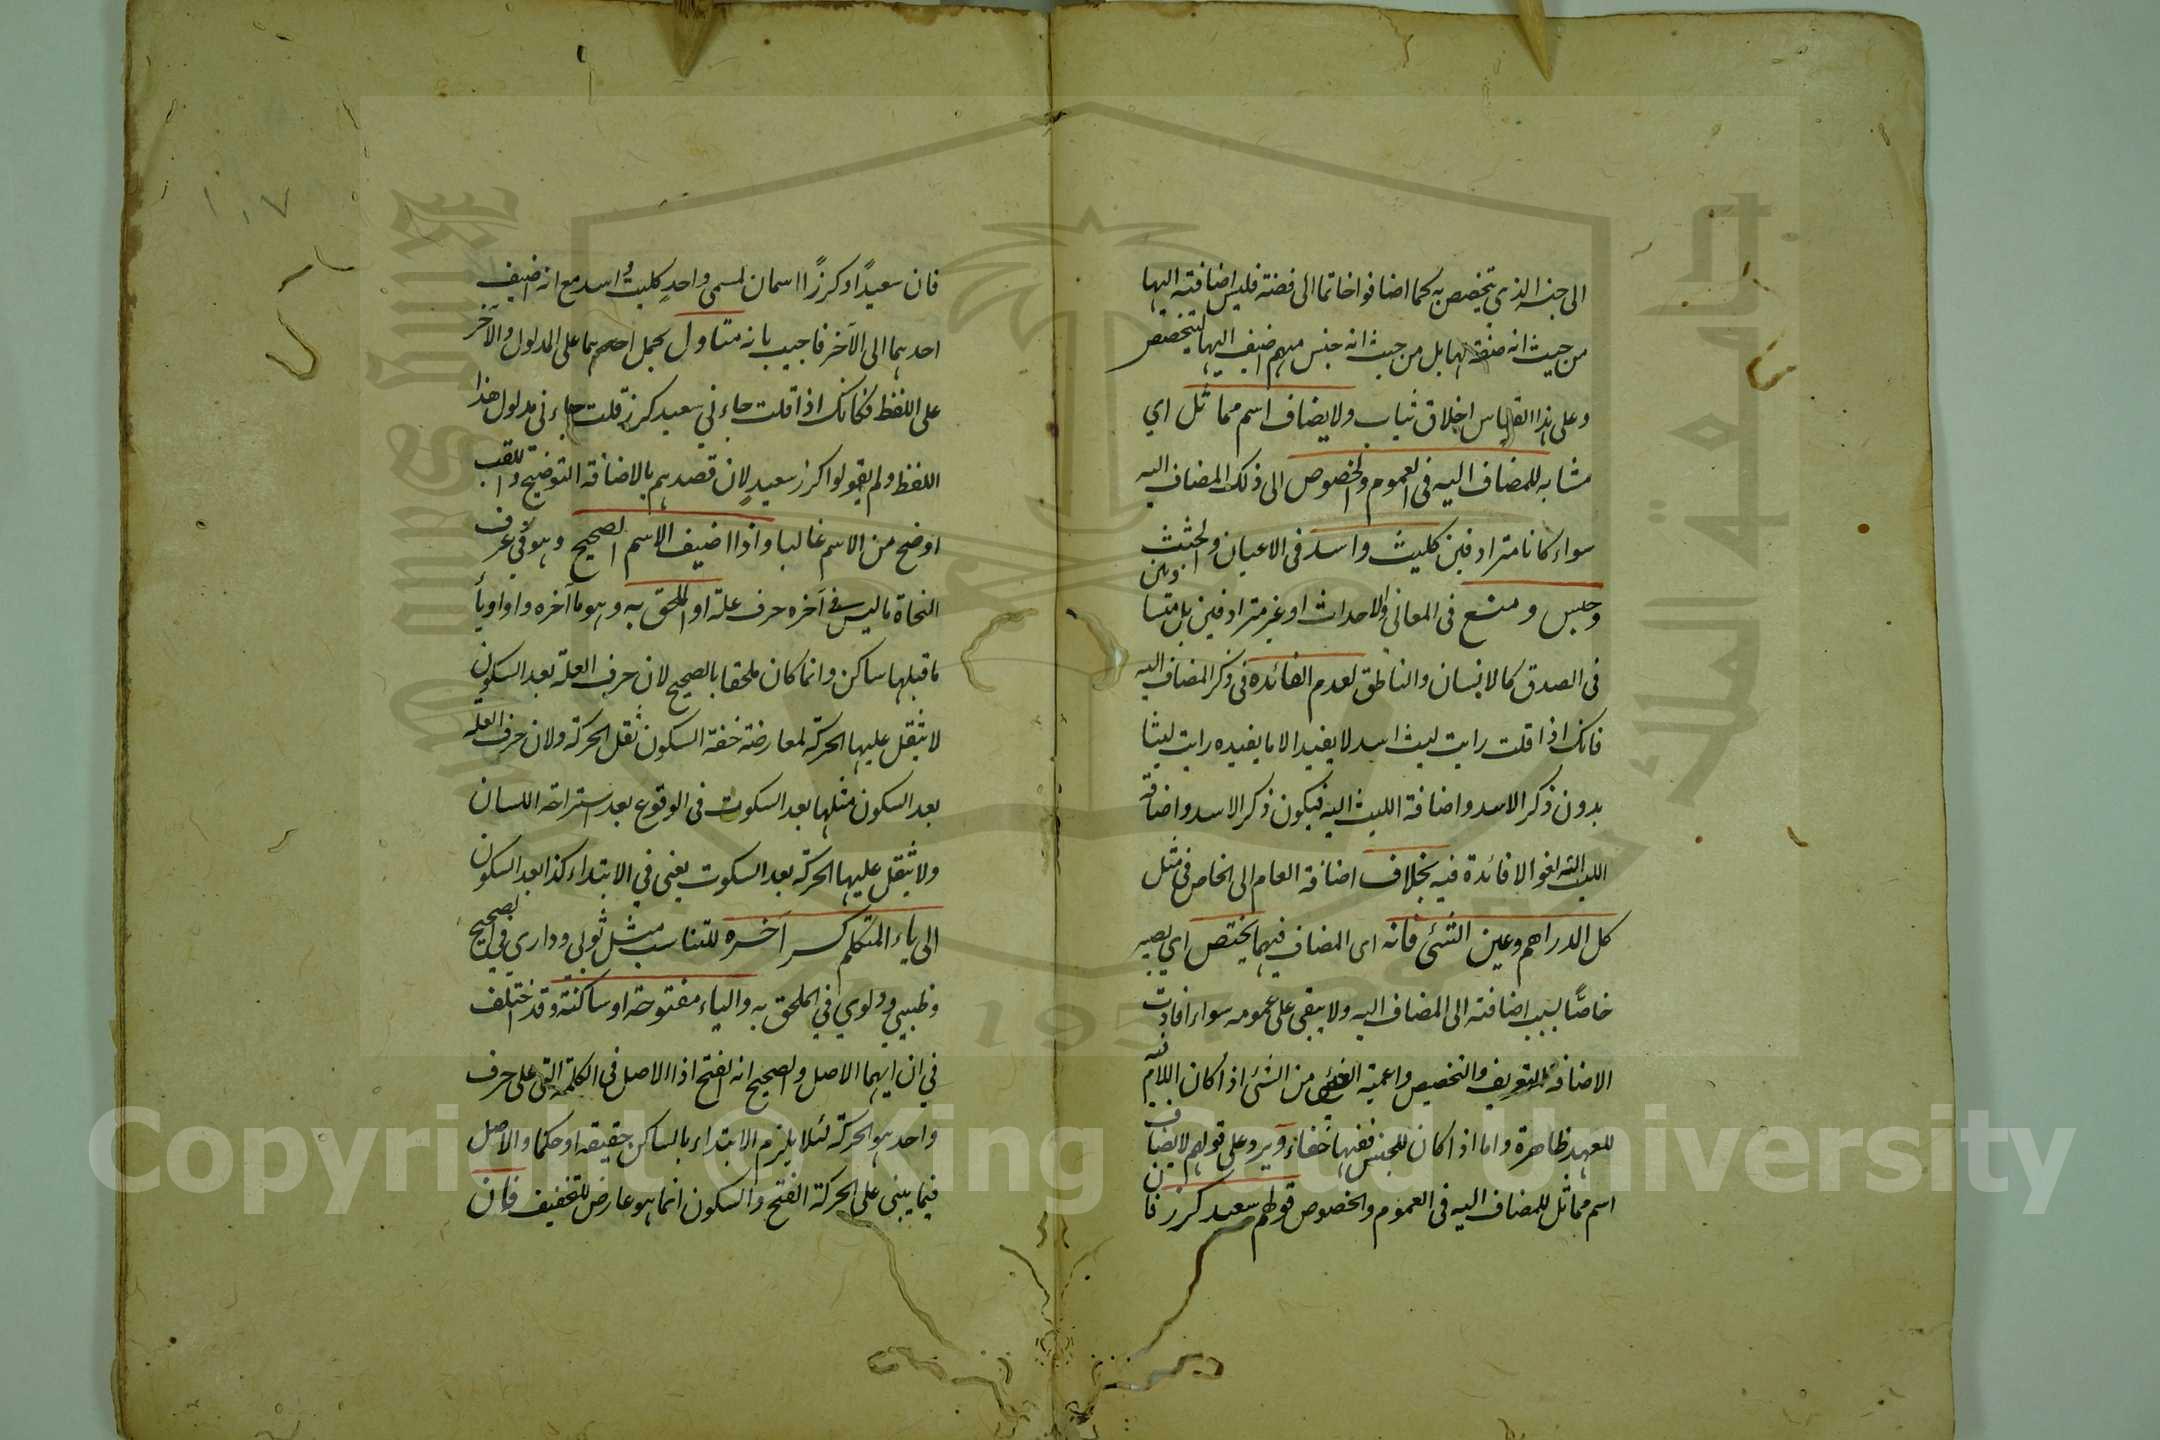 الى جنسه الذي يتخصص به كما اضافوا خاتما الى فضة فليس اضافته اليها
من حيث انه صفة لها بل من حيث انه جنس مبهم اضيف اليها ليتخصص
وعلى هذا القياس اخلاق ثياب ولا يضاف اسم مماثل اي
مشابه للمضاف اليه في العموم والخصوص الى ذلك المضاف اليه
سواء كانا مترادفين كليث واسد في الاعيان والجثث
وحبس ومنع في المعاني والاحداث او غير مترادفين بل متساويين
في الصدق كالانسان والناطق لعدم الفائدة في ذكر المضاف اليه
فانك اذا قلت رايت ليث اسد لا يفيد الا ما يفيده رايت ليثا
بدون ذكر الاسد واضافة الليث اليه فيكون ذكر الاسد واضافة
الليث اليه لغوا لا فائدة فيه بخلاف اضافة العام الى الخاص في مثل
كل الدراهم وعين الشئ فانه اى المضاف فيهما يختص اي يصير
خاصًّا بسبب اضافته الى المضاف اليه ولا يبقى على عمومه سواء افادت
الاضافة التعريف والتخصيص واعمية العين من الشئ اذا كان اللام فيه
للعهد ظاهرة واما اذا كان للجنس ففيها خفاء ويرد على قولهم لا يضاف
اسم مماثل للمضاف اليه في العموم والخصوص قولهم سعيد كرز فان
فان سعيدًا وكرزًا اسمان لمسمى واحدٍ كليث واسد مع انه اضيف
احدهما الى الآخر فاجيب بانه متاول بحمل احدهما على المدلول والآخر
على اللفظ فكانك اذا قلت جاءني سعيد كرز قلت جاءني مدلول هذا
اللفظ ولم يقولوا كرز سعيدٍ لان قصدهم بالاضافة التوضيح واللقب
اوضح من الاسم غالبا واذا اضيف الاسم الصحيح وهو في عرف
النحاة ما ليس في آخره حرف علة او الملحق به وهو ما آخره واو او يأ
ما قبلها ساكن وانما كان ملحقا بالصحيح لان حرف العلة بعد السكون
لا يثقل عليها الحركة لمعارضة خفة السكون ثقل الحركة ولان حرف العلة
بعد السكون مثلها بعد السكوت في الوقوع بعد استراحة اللسان
ولا يثقل عليها الحركة بعد السكوت يعني في الابتداء كذا بعد السكون
الى ياء المتكلم كسر آخره للتناسب مثل ثوبي وداري في الصحيح
وظبيي ودلوي في الملحق به والياء مفتوحة او ساكنة وقد اختلف
في ان ايهما الاصل والصحيح انه الفتح اذا الاصل في الكلمة التي على حرف
واحد هو الحركة لئلا يلزم الابتداء بالساكن حقيقة او حكما والاصل
فيما يبنى على الحركة الفتح والسكون انما هو عارض للتخفيف فان
١٠٧
Copyright © King Saud University
1957